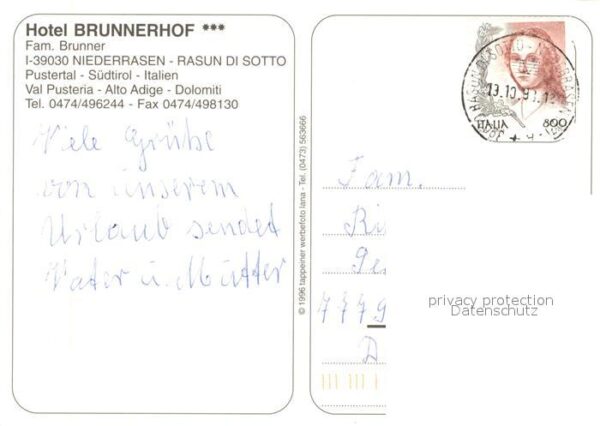 Hotel BRUNNERHOF ***
Fam. Brunner
I-39030 NIEDERRASEN - RASUN DI SOTTO
Pustertal - Südtirol - Italien
Val Pusteria - Alto Adige - Dolomiti
Tel. 0474/496244 - Fax 0474/498130
Viele Grüße
von unserem
Urlaub sendet
Vater u. Mutter
© 1996 tappeiner werbefoto lana - Tel. (0473) 563666
ITALIA 800
RASUN DI SOTTO
Fam.
Ri
Ge
7779
D
privacy protection
Datenschutz